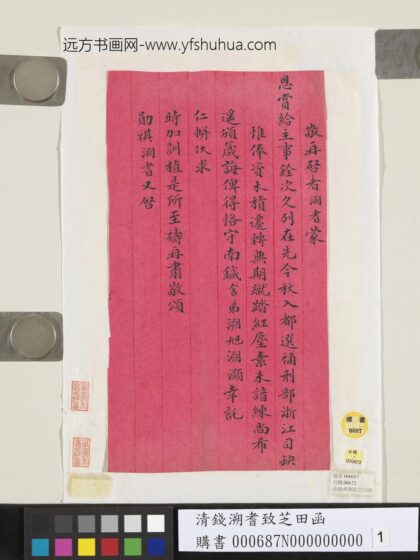 远方书画网-www.yfshuhua.com
敬再啓者溯耆蒙
恩賞給主事銓次久列在先今秋入都選補刑部浙江司缺
惟俸資未積遷轉無期蹴踏紅塵素未諳練尚希
遥頒箴誨俾得恪守南鍼舍弟溯旭溯灝幸託
仁帡伏求
時加訓植是所至禱再肅敬頌
勛祺溯耆又啓
購書
0687
000672
清錢溯耆致芝田函
購書 000687N000000000
1